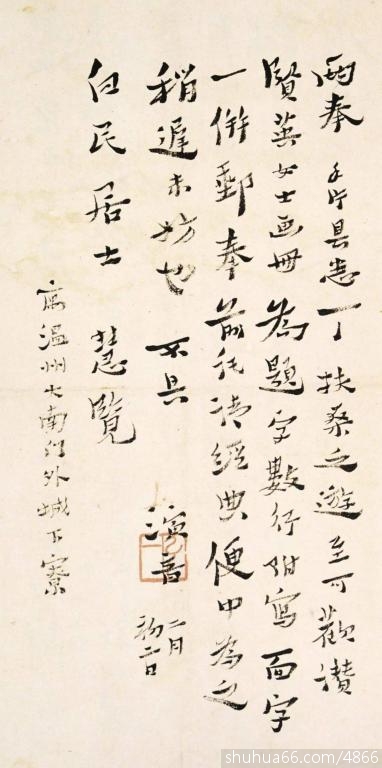 兩奉手片具悉一一扶桑之遊至可歡讚
賢英女士画冊為題字數行附寫面字
一併郵奉前託請經典便中為之
稍遲未妨也不具
演音
二月初二日
白民居士慧覽
寓溫州大南門外城下寮
shuhua66.com/4866